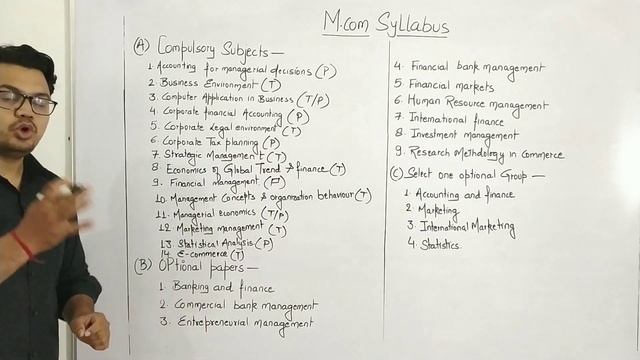 M.com Syllabus
(A) Compulsory Subjects —
1. Accounting for managerial decisions (P)
2. Business Environment (T)
3. Computer Application in Business (T/P)
4. Corporate financial Accounting (P)
5. Corporate legal environment (T)
6. Corporate Tax planning (P)
7. Strategic Management (T)
8. Economics of Global Trend & finance (T)
9. Financial management (P)
10. Management Concepts & organization behaviour (T)
11. Managerial economics (T/P)
12. Marketing management (T)
13. Statistical Analysis (P)
14. E-commerce (T)
(B) Optional papers —
1. Banking and finance
2. Commercial bank management
3. Entrepreneurial management
4. Financial bank management
5. Financial markets
6. Human Resource management
7. International finance
8. Investment management
9. Research Methdology in Commerce
(C) Select one optional Group —
1. Accounting and finance
2. Marketing
3. International Marketing
4. Statistics.